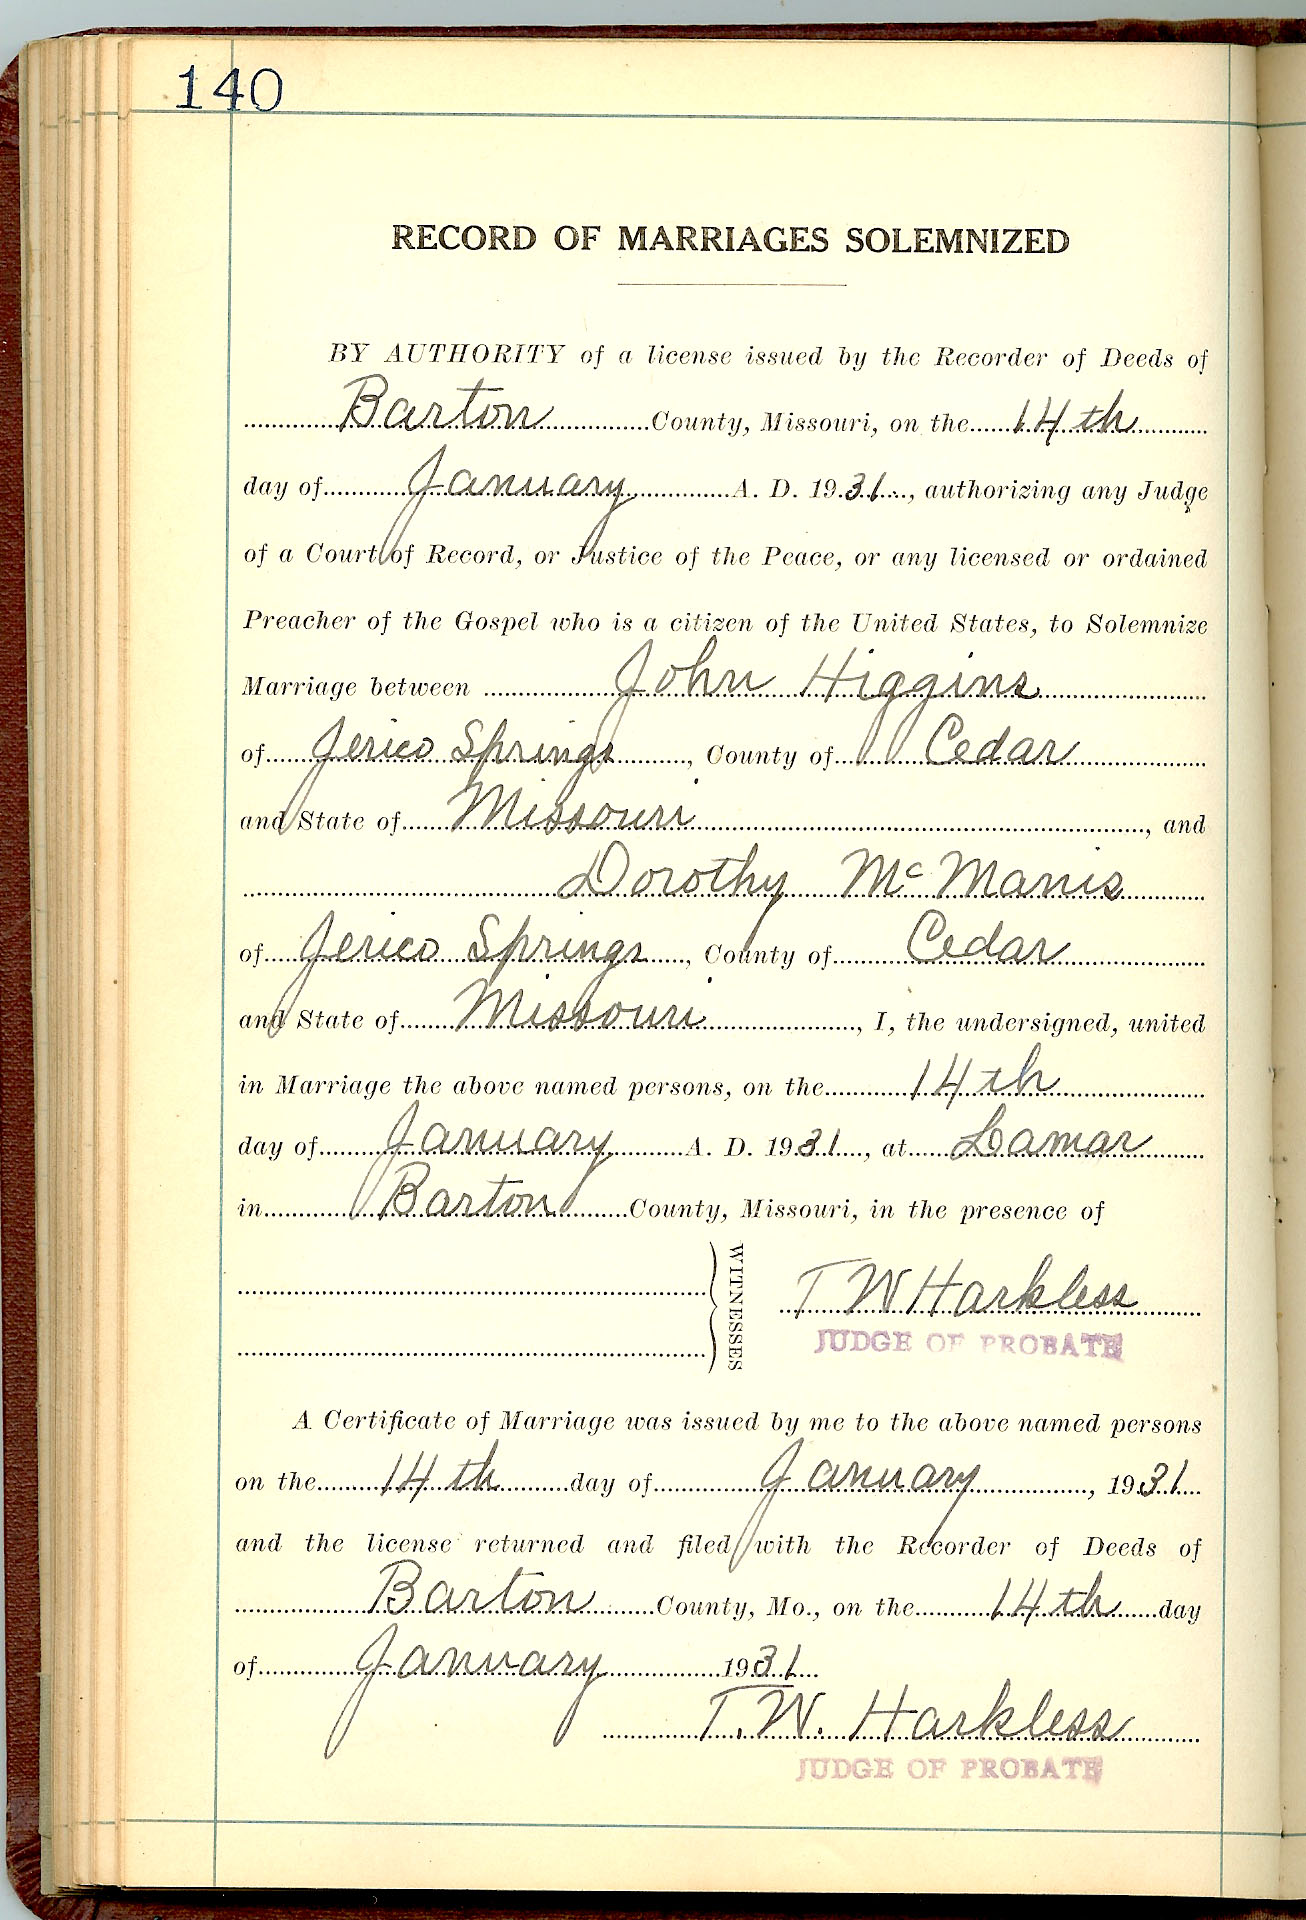 140
RECORD OF MARRIAGES SOLEMNIZED
BY AUTHORITY of a license issued by the Recorder of Deeds of
Barton County, Missouri, on the 14th
day of January A. D. 1931, authorizing any Judge
of a Court of Record, or Justice of the Peace, or any licensed or ordained
Preacher of the Gospel who is a citizen of the United States, to Solemnize
Marriage between John Higgins
of Jerico Springs, County of Cedar
and State of Missouri, and
Dorothy McManis
of Jerico Springs, County of Cedar
and State of Missouri, I, the undersigned, united
in Marriage the above named persons, on the 14th
day of January A. D. 1931, at Lamar
in Barton County, Missouri, in the presence of
WITNESSES
T W Harkless
JUDGE OF PROBATE
A Certificate of Marriage was issued by me to the above named persons
on the 14th day of January, 1931
and the license returned and filed with the Recorder of Deeds of
Barton County, Mo., on the 14th day
of January 1931
T. W. Harkless
JUDGE OF PROBATE